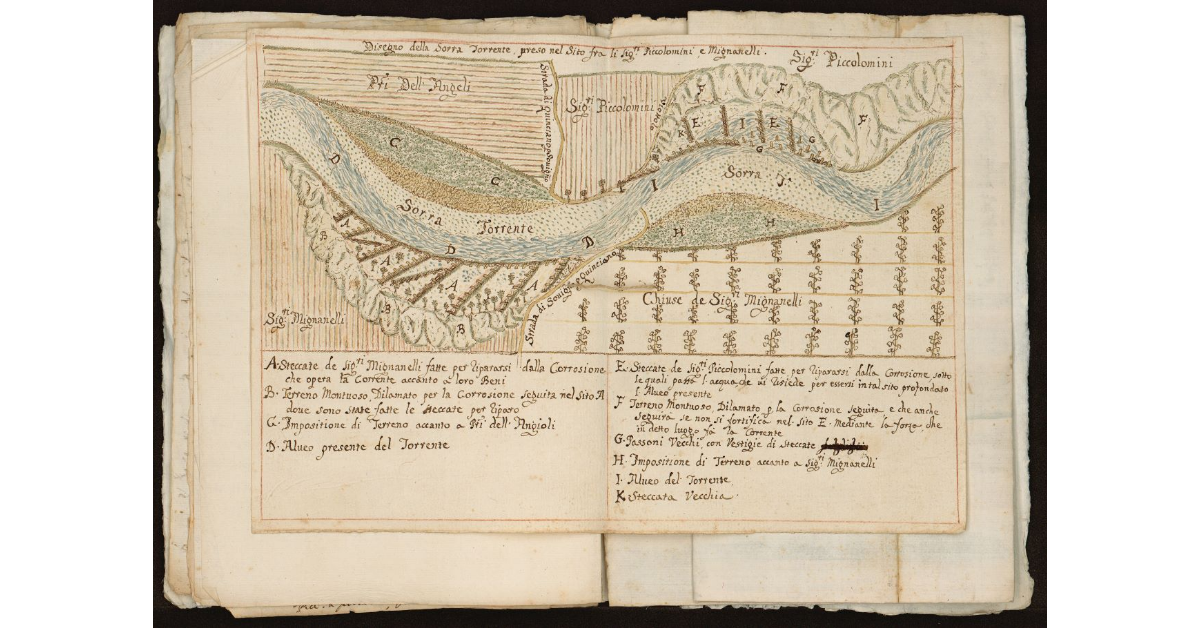 Disegno della Sorra Torrente, preso nel Sito fra li Sig.ri Piccolomini, e Mignanelli.
Sig.ri Piccolomini
Pri Dell' Angeli
Strada di Quinciano
Sig.ri Piccolomini
F
F
F
E
I
E
K
G
G
C
C
D
I
Sorra T.
Sorra
Torrente
H
H
I
D
D
B
A
A
A
A
B
B
Strada di Souigna Quinciano
Chiuse de Sig.ri Mignanelli
Sig.ri Mignanelli
A. Steccate de Sig.ri Mignanelli fatte per Ripararsi dalla Corrosione
che opera la Corrente accanto a loro Beni
B. Terreno Montuoso, Dilamato per la Corrosione Seguita nel Sito A
dove sono state fatte le Steccate per Riparo
C. Impositione di Terreno accanto a Pri dell' Angioli
D. Alueo presente del Torrente
E. Steccate de Sig.ri Piccolomini fatte per Ripararsi dalla Corrosione sotto
le quali passa l'acqua, che ui Risiede per essersi in tal sito profondato
l'Alueo presente
F. Terreno Montuoso, Dilamato p. la Corrosione Seguita, e che anche
Seguirà se non si fortifica nel Sito E. Mediante la forza, che
in detto luogo fà la Corrente
G. Passoni Vecchi, con Vestigie di Steccate
H. Impositione di Terreno accanto a Sig.ri Mignanelli
I. Alueo del Torrente
K. Steccata Vecchia.